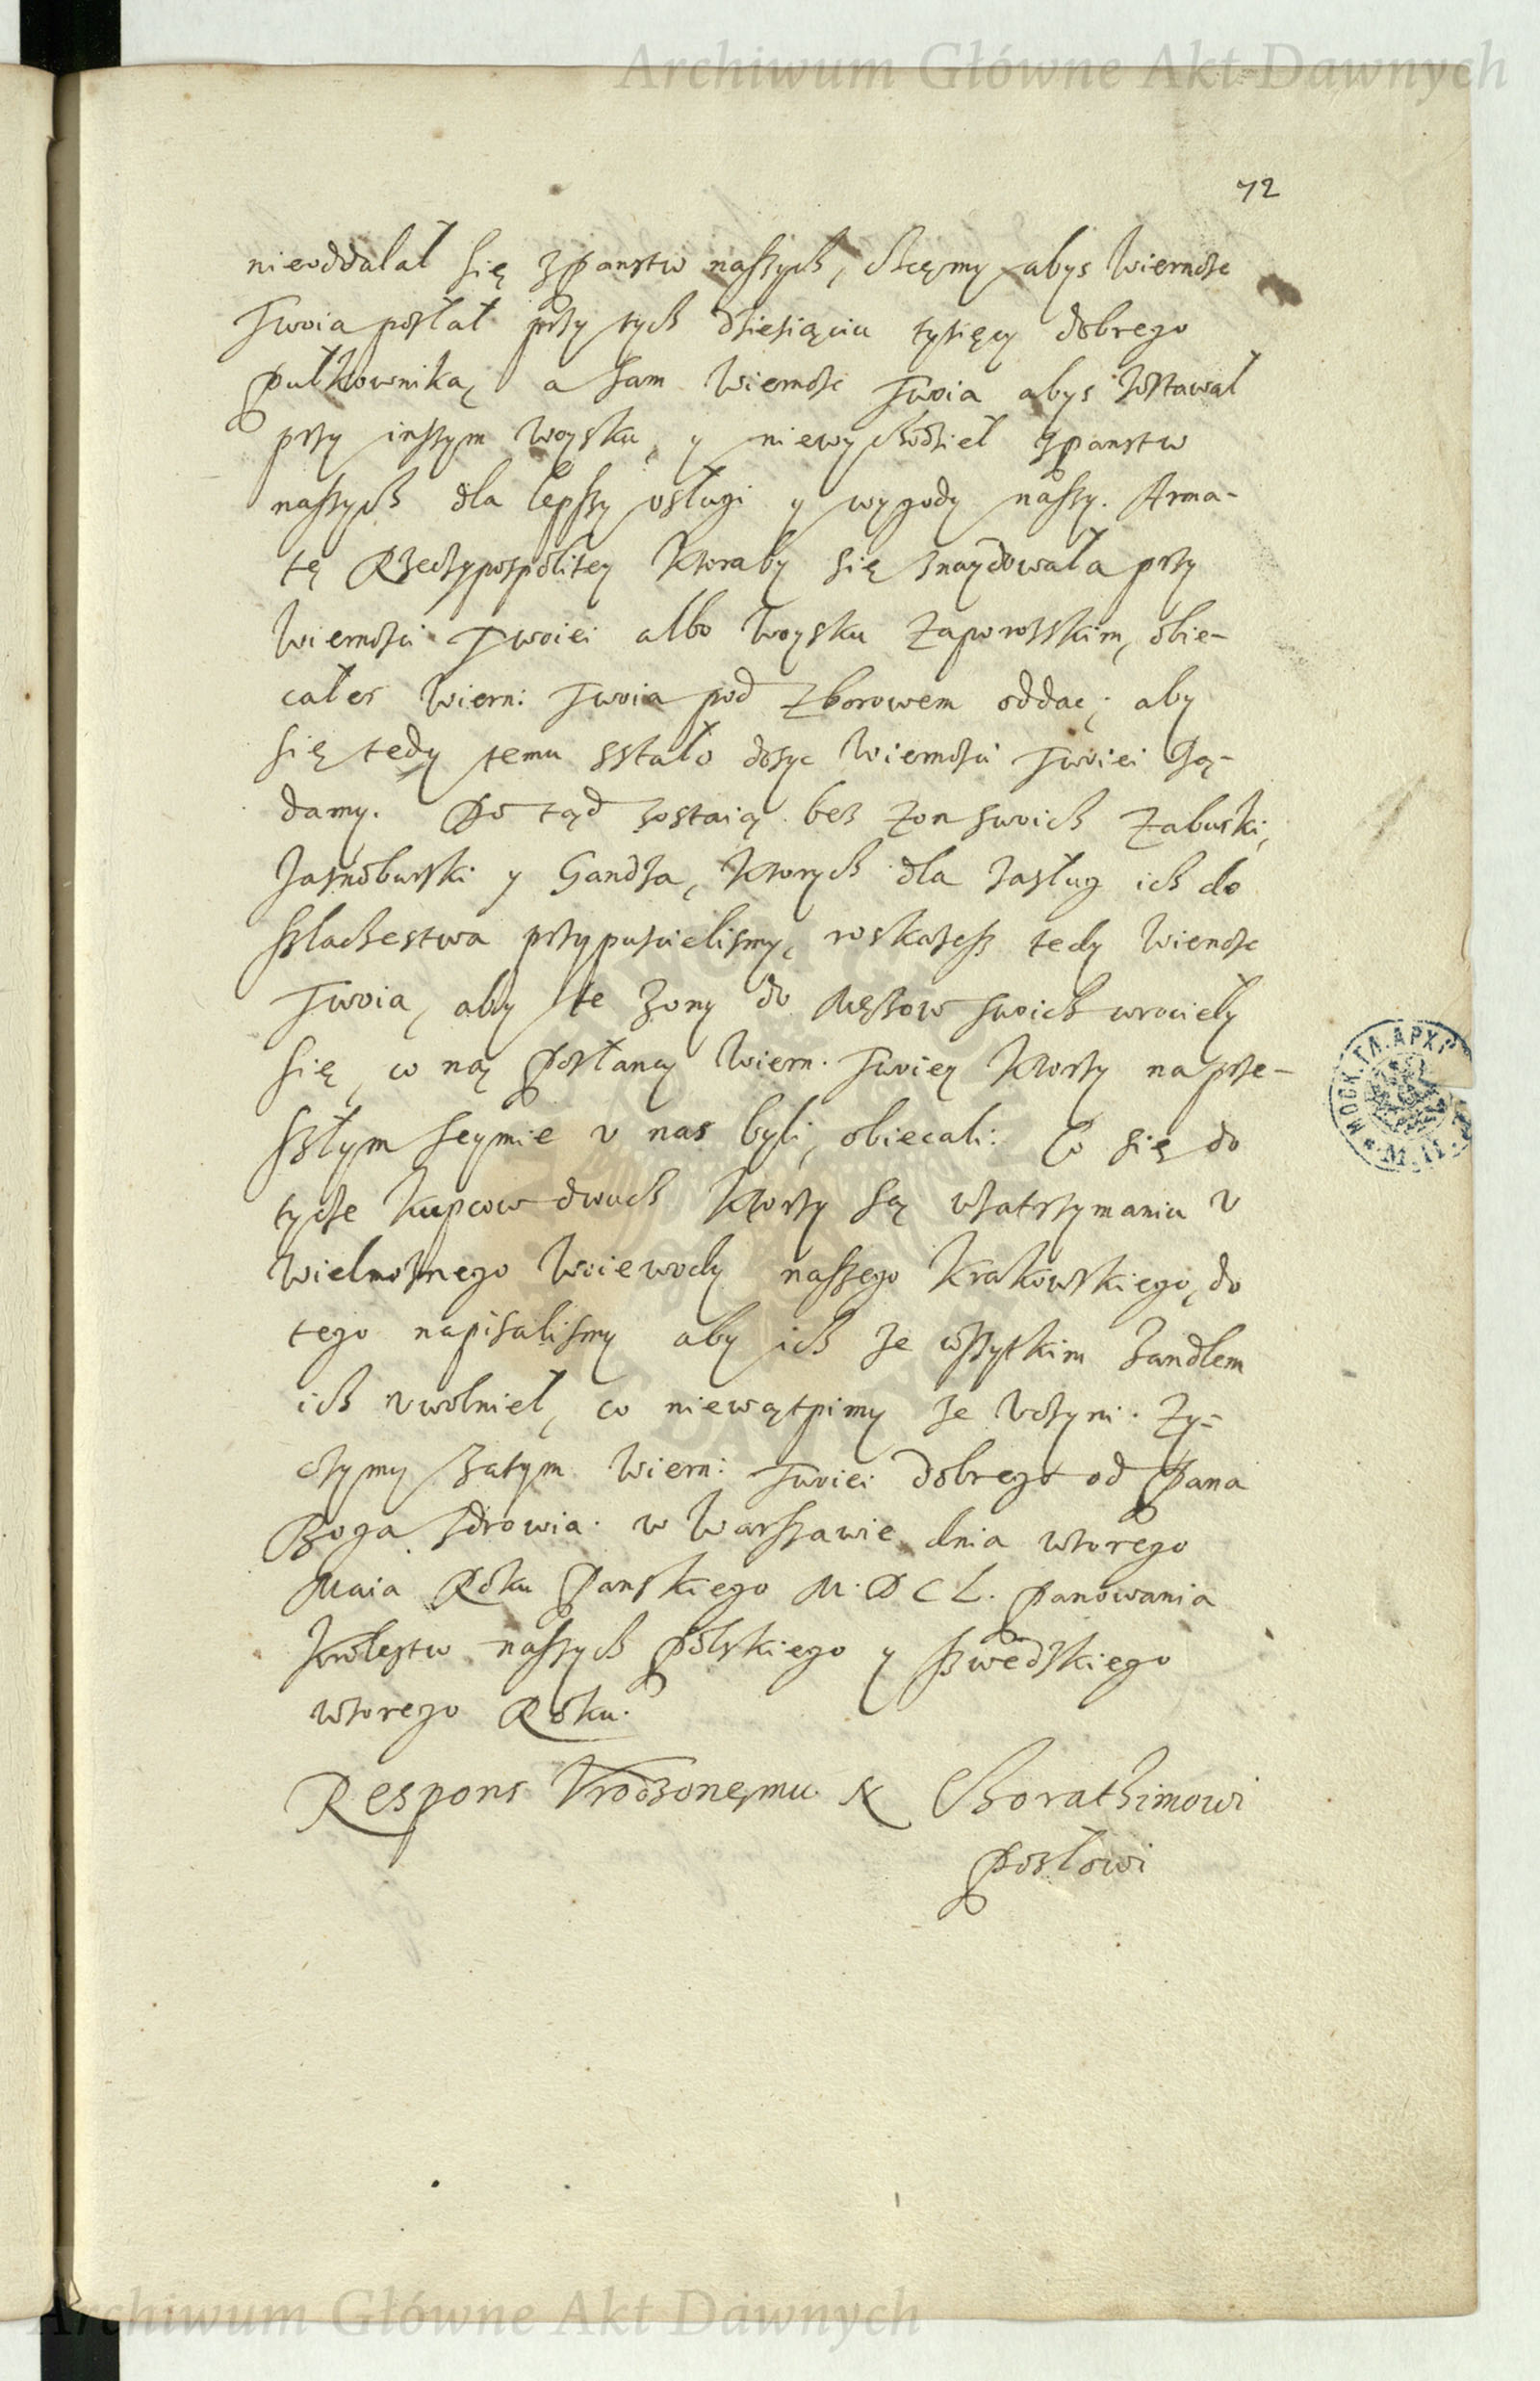 Archiwum Główne Akt Dawnych
72
nieoddalał się z Panstw naszych, chcęmy abys Wiernosc
Twoia posłał przy tych dziesiąciu tysięcy dobrego
Pułkownika, a sam Wiernosc Twoia abys zostawał
przy inszym woysku, y niewychodzieł z panstw
naszych dla lepszy vsługi y wygody naszy. Arma-
tę Rzeczypospolitey ktoraby się znaydowała przy
Wiernosci Twoiei albo Woysku Zaporoskim, obie-
całes Wiern: Twoia pod Zborowem oddac; aby
się tedy temu sstało dosyc Wiernosci Twoiei żą-
damy. Po tąd zostaią bez zon swoich Zabuski,
Jasnoburski y Gandza, ktorych dla zasług ich do
szlachestwa przypuscielismy, roskazesz tedy Wiernosc
Twoia, aby te zony do Męzow swoich wrocieły
się, co nąm Posłancy Wiern. Twoiey ktorzy na prze-
szłym seymie v nas byli, obiecali: Co się do
tycze kupcow dwuch ktorzy są w zatrzymaniu v
Wielmoznego Woiewody naszego Krakowskiego, do
tego napisalismy aby ich ze wszytkim handlem
ich vwolnieł, co niewątpimy ze vczyni. Zy-
czymy zatym Wiern: Twoiei dobrego od Pana
Boga zdrowia. w Warszawie dnia wtorego
Maia Roku Panskiego M.D C L. Panowania
Krolestw naszych Polskiego y Szwedskiego
wtorego Roku.
Respons Vrodzonemu N Chorathimowi
Posłowi
МОСК.ГЛ.АРХ
Archiwum Główne Akt Dawnych